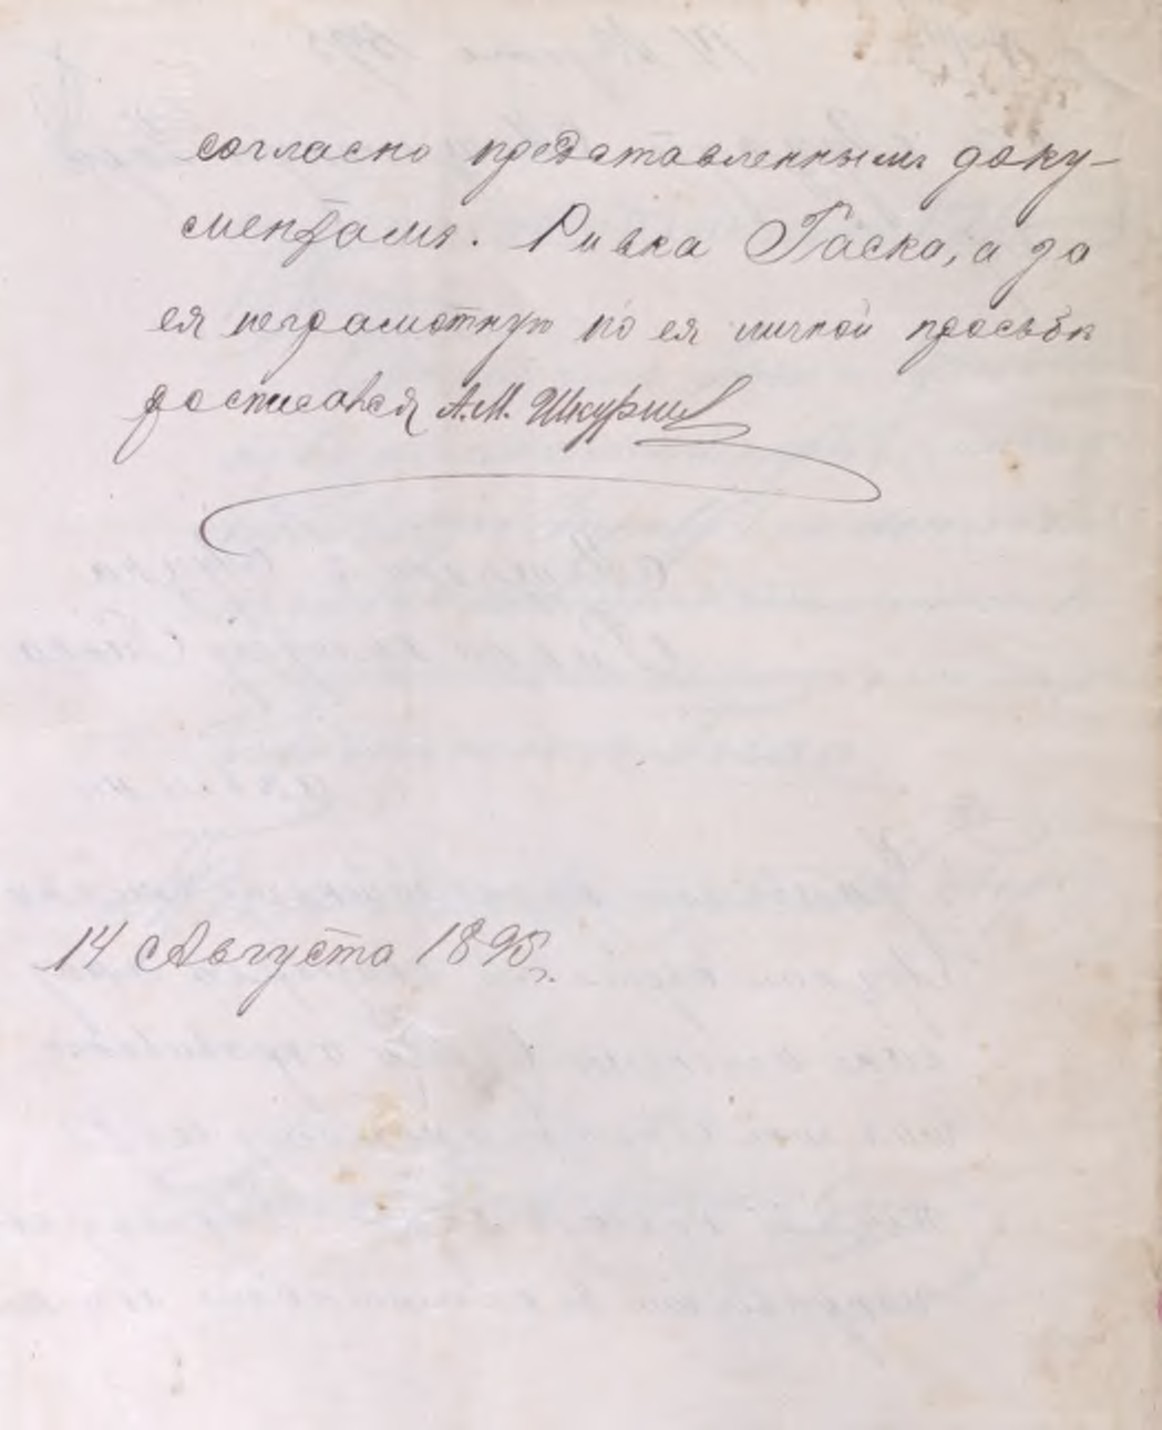 согласно представленнымъ доку-
ментамъ. Ривка Гаска, а за
ея неграмотную по ея личной просьбѣ
росписался А.М. Шкур
14 Августа 1895 г.